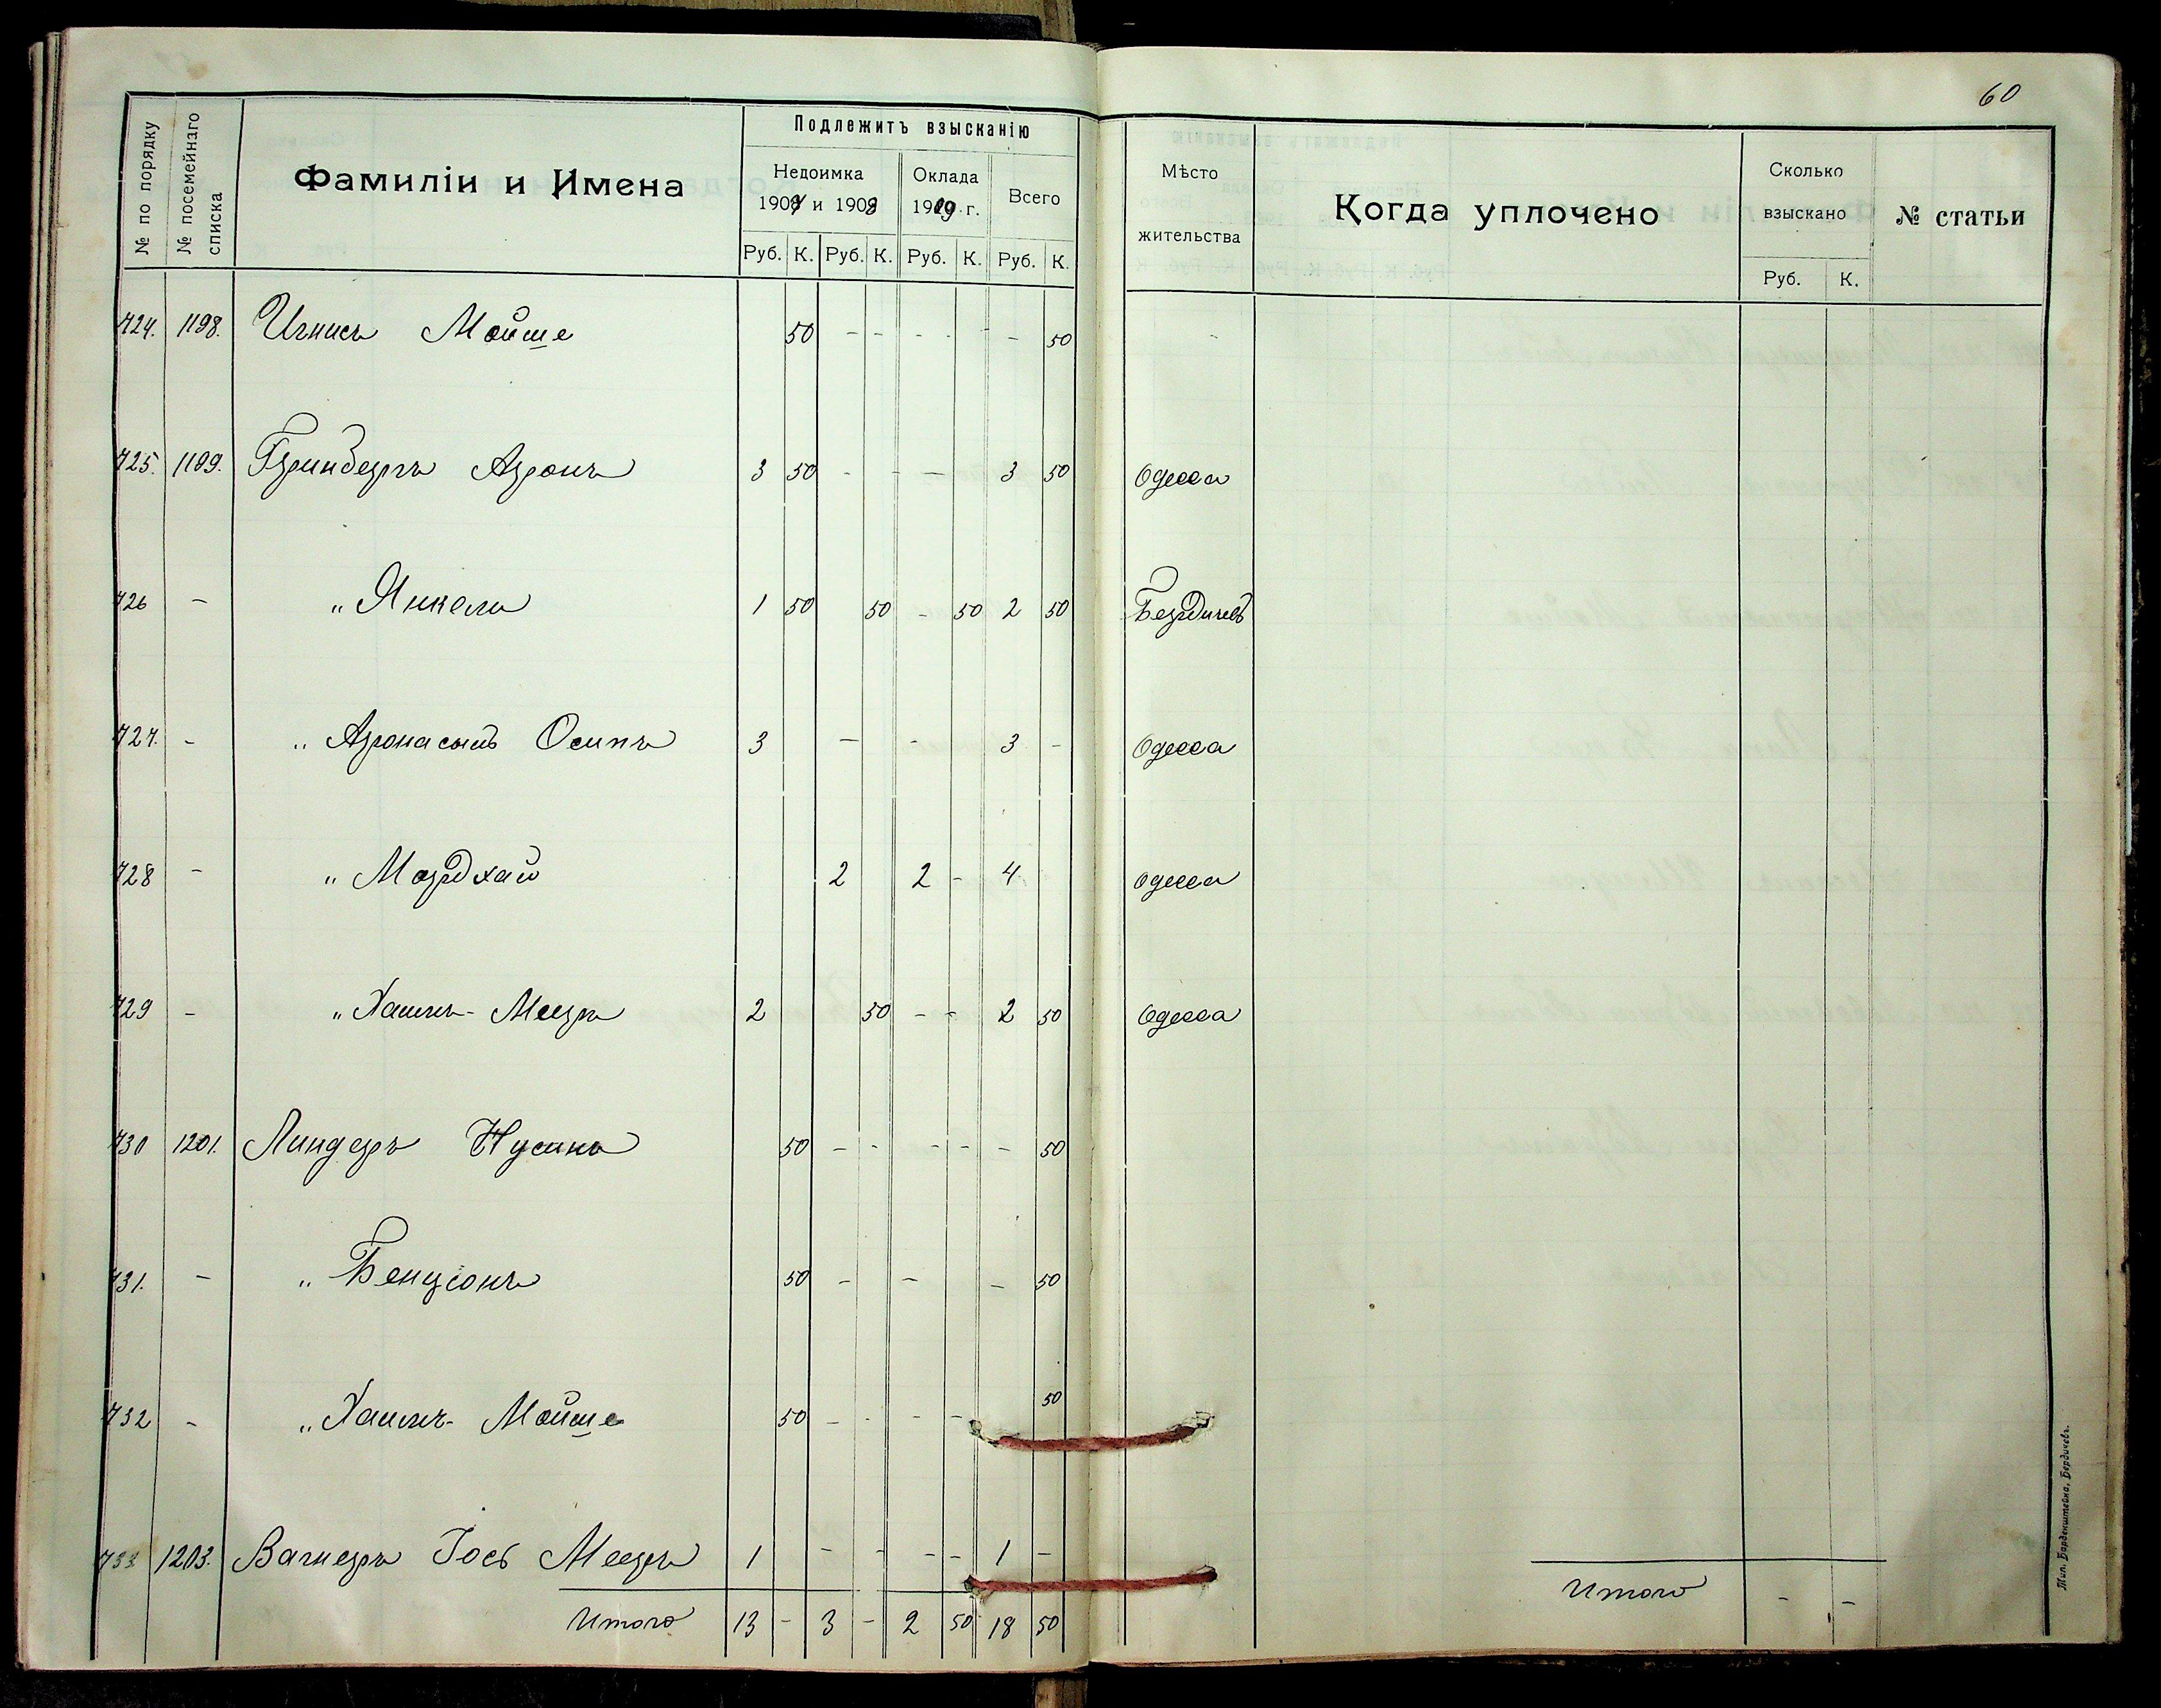 60
№ по порядку
№ посемейнаго списка
Фамиліи и Имена
Подлежитъ взысканію
Недоимка
1907 и 1908
Оклада
1909 г.
Всего
Руб. К. Руб. К. Руб. К. Руб. К.
Мѣсто
жительства
Когда уплочено
Сколько
взыскано
Руб. К.
№ статьи
724. 1198. Мойше 50 - - - - - - 50 -
725. 1199. Гринбергъ Аронъ 3 50 - - - 3 50 Одесса
726 - " Янкель 1 50 50 - 50 2 50 Бердичевъ
727. - " Арона сынъ Осипъ 3 - - 3 - Одесса
728 - " Мордхай 2 2 - 4 Одесса
729 - " Хаимъ-Мееръ 2 50 - - 2 50 Одесса
730 1201. Линдеръ Нусинъ 50 - - - - - 50
731. - " Бенціонъ 50 - - - 50
732 - " Хаимъ-Мойше 50 - - - - 50
733 1203. Вагнеръ Іось Мееръ 1 - - - - 1 -
Итого 13 - 3 - 2 50 18 50
Итого - -
Тип. Барденштейна, Бердичевъ.